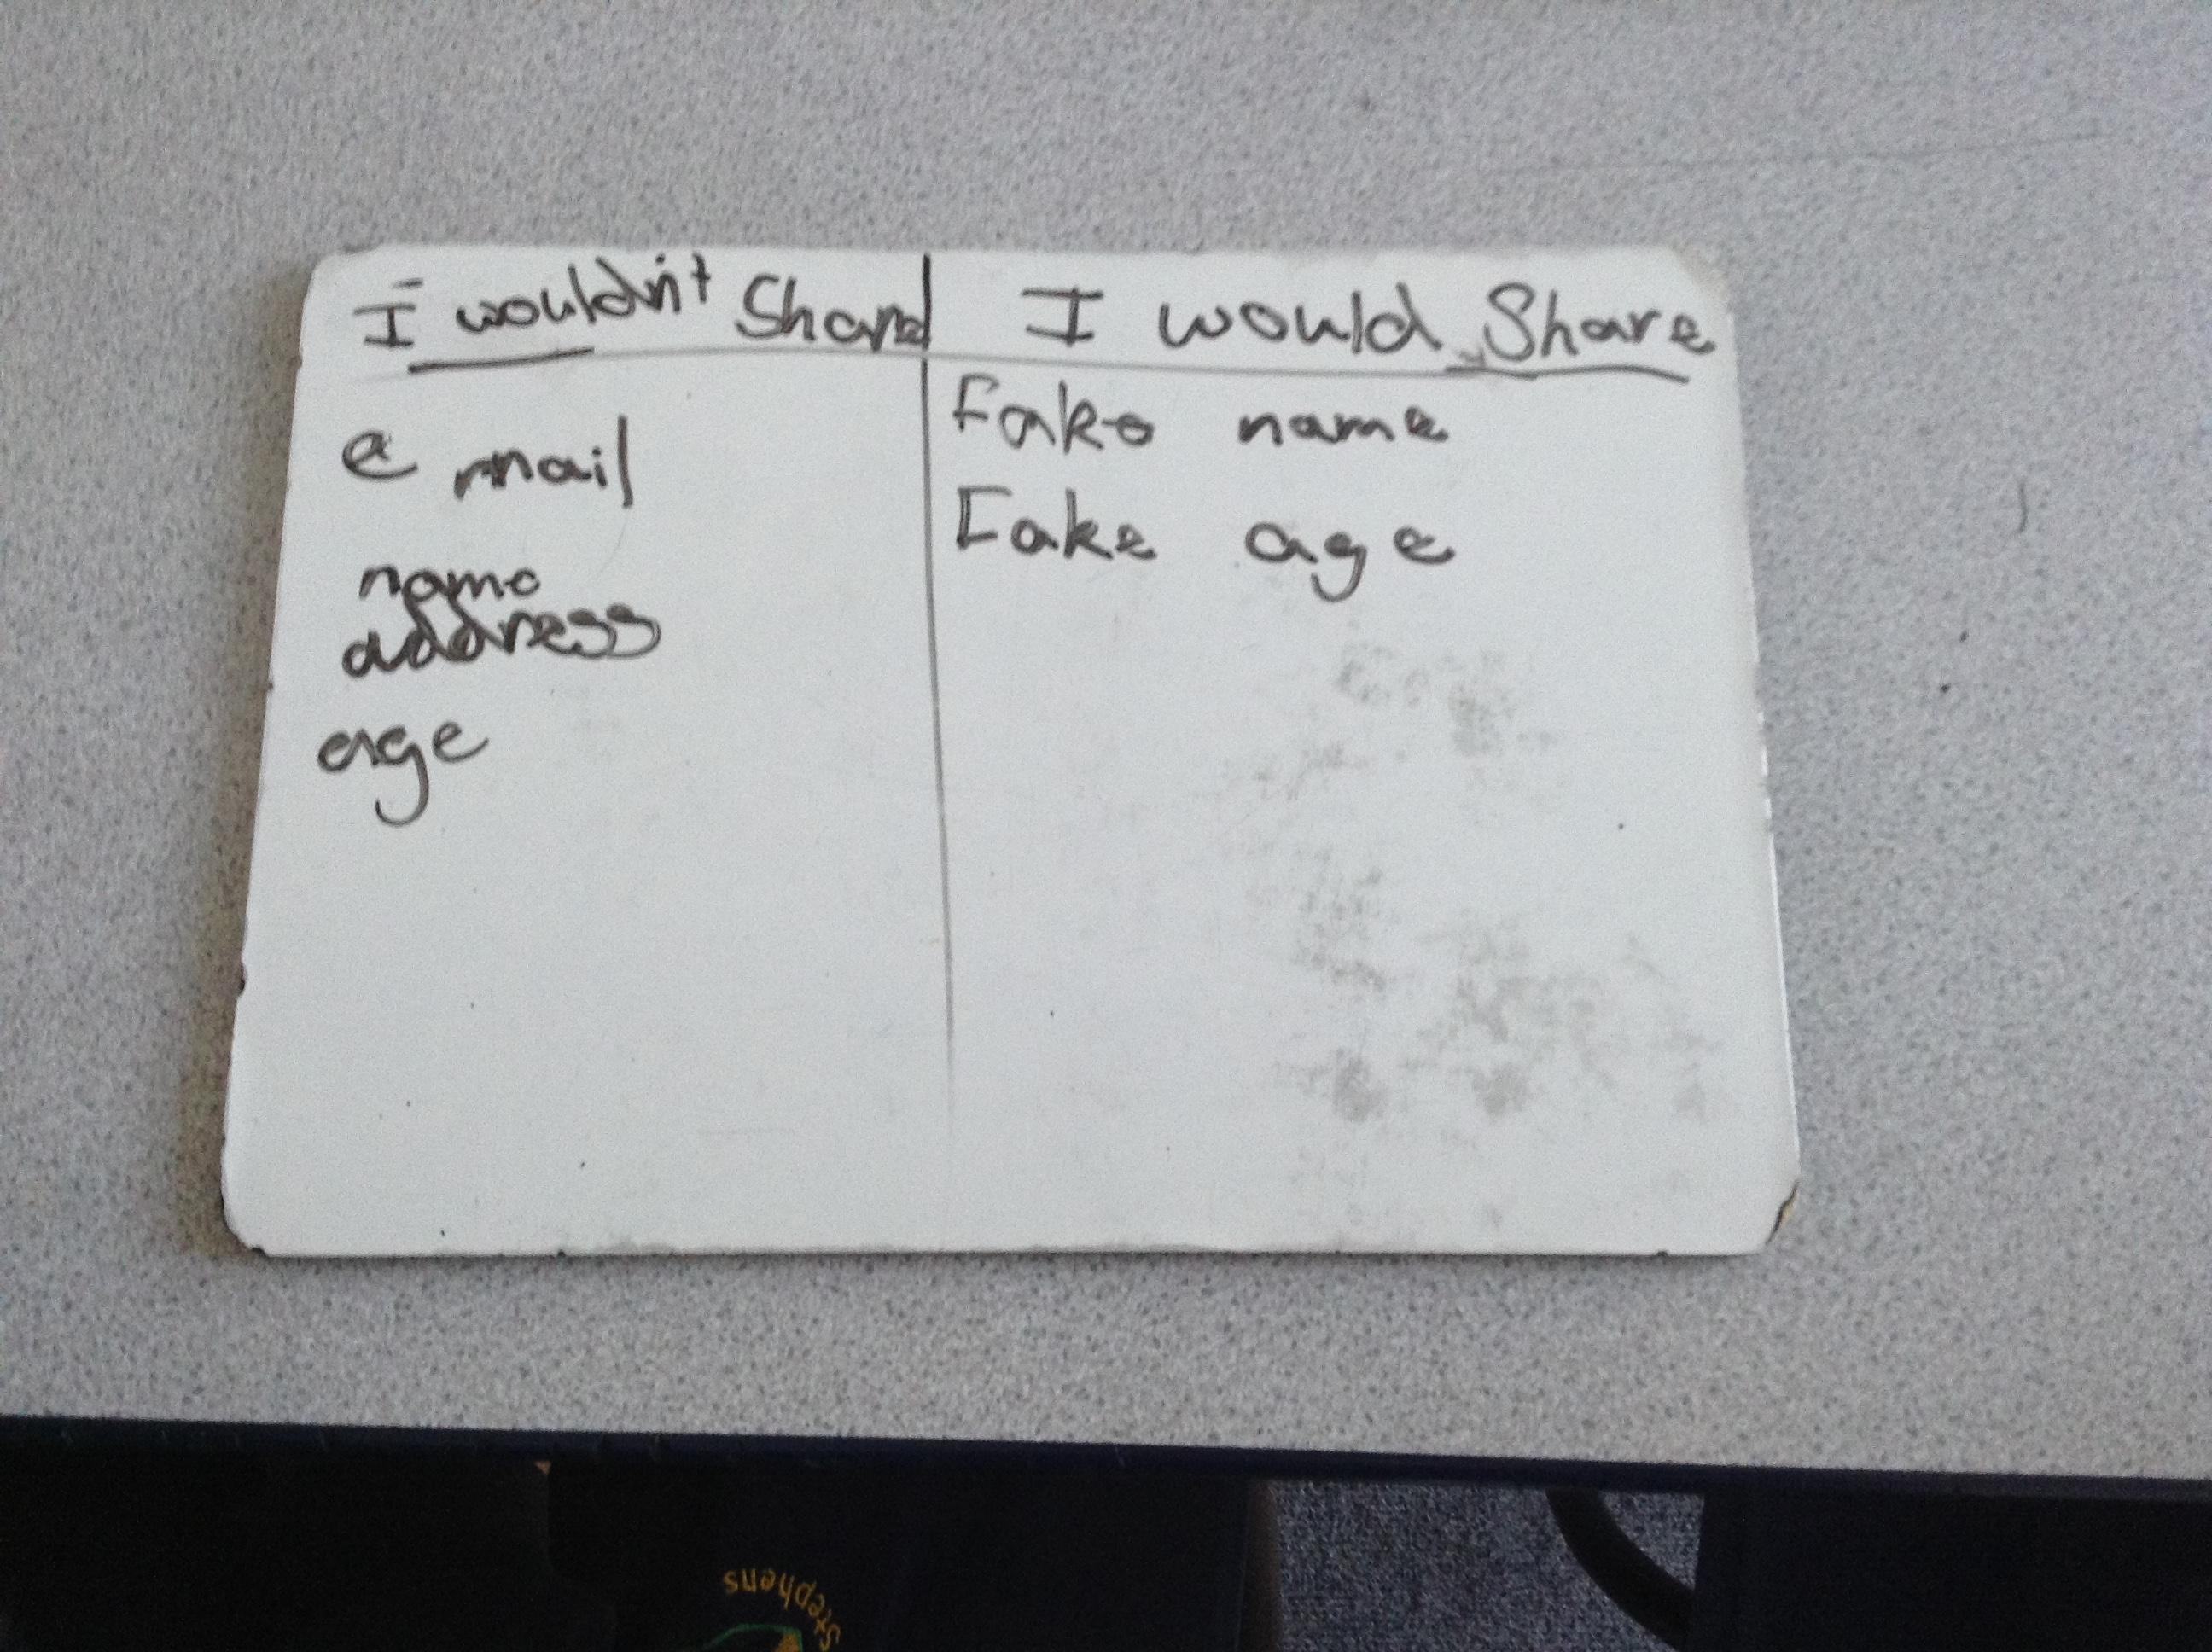 I wouldn't Share
I would Share
e mail
name
address
age
Fake name
Fake age
Stephens